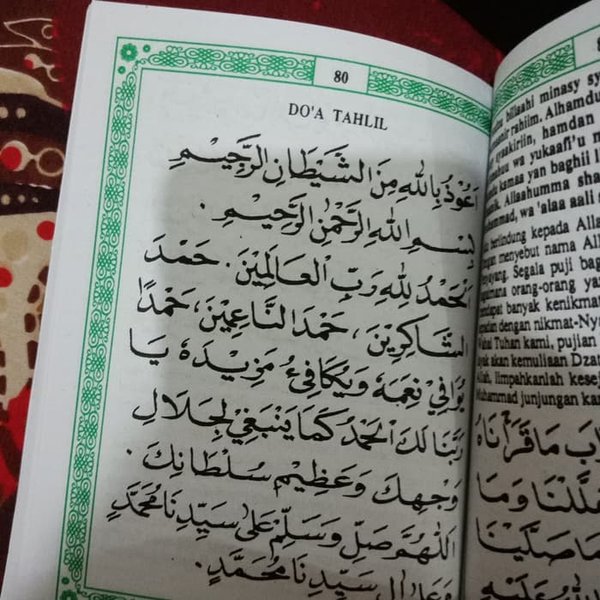 80
DO'A TAHLIL
اَعُوْذُ بِاللهِ مِنَ الشَّيْطَانِ الرَّجِيْمِ
بِسْمِ اللهِ الرَّحْمٰنِ الرَّحِيْمِ .
اَلْحَمْدُ لِلّٰهِ رَبِّ الْعَالَمِيْنَ . حَمْدَ
الشَّاكِرِيْنَ ، حَمْدَ النَّاعِمِيْنَ ، حَمْدًا
يُوَافِيْ نِعَمَهُ وَيُكَافِئُ مَزِيْدَهُ يَا
رَبَّنَا لَكَ الْحَمْدُ كَمَا يَنْبَغِيْ لِجَلَالِ
وَجْهِكَ وَعَظِيْمِ سُلْطَانِكَ .
اَللّٰهُمَّ صَلِّ وَسَلِّمْ عَلَى سَيِّدِنَا مُحَمَّدٍ
وَعَلَى اٰلِ سَيِّدِنَا مُحَمَّدٍ .
billaahi minasy
rahiim. Alhamdu
syaakiriin, hamdan
wa yukaafi'u
kamaa yan baghii
Allaahumma
wa 'alaa aali
berlindung kepada
menyebut nama
Segala puji
orang-orang
banyak
dengan nikmat-Nya
Tuhan kami, pujian
akan kemuliaan
limpahkanlah
junjungan
مَا قَرَأْنَاهُ
وَمَا
مَا صَلَّيْنَا
عَلَيْهِ